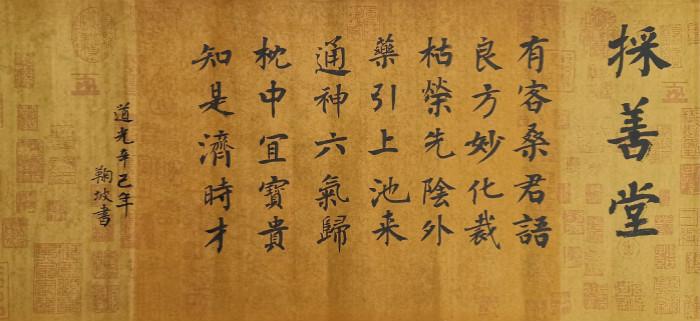 採善堂
有客桑君語
良方妙化裁
枯榮先陰外
藥引上池来
通神六氣歸
枕中冝寶貴
知是濟時才
道光辛巳年
鞠坡書